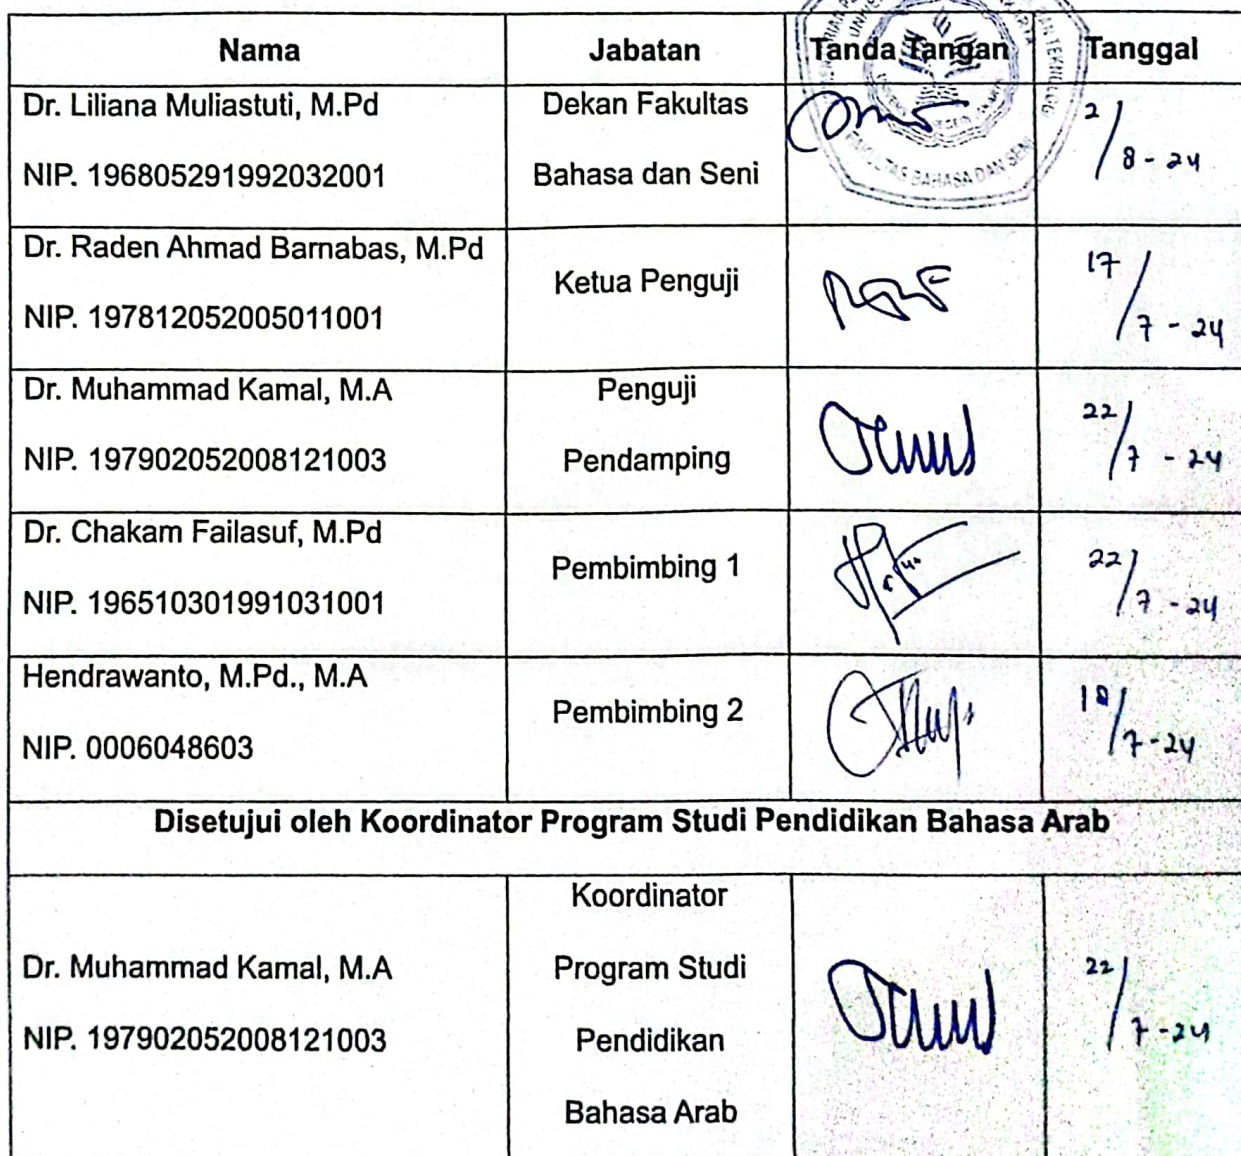 Nama Jabatan Tanda Tangan Tanggal
Dr. Liliana Muliastuti, M.Pd
NIP. 196805291992032001
Dekan Fakultas
Bahasa dan Seni
2/8-24
FAKULTAS BAHASA DAN SENI
Dr. Raden Ahmad Barnabas, M.Pd
NIP. 197812052005011001
Ketua Penguji
17/7-24
Dr. Muhammad Kamal, M.A
NIP. 197902052008121003
Penguji
Pendamping
22/7-24
Dr. Chakam Failasuf, M.Pd
NIP. 196510301991031001
Pembimbing 1
22/7-24
Hendrawanto, M.Pd., M.A
NIP. 0006048603
Pembimbing 2
/7-24
Disetujui oleh Koordinator Program Studi Pendidikan Bahasa Arab
Dr. Muhammad Kamal, M.A
NIP. 197902052008121003
Koordinator
Program Studi
Pendidikan
Bahasa Arab
22/7-24